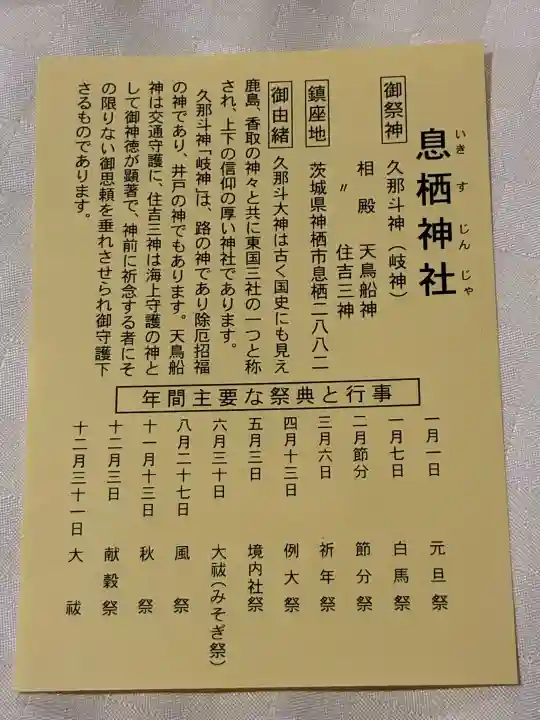 息栖神社
いきすじんじゃ
御祭神 久那斗神（岐神）
相殿 天鳥船神
〃 住吉三神
鎮座地 茨城県神栖市息栖二八八二
御由緒 久那斗大神は古く国史にも見え
鹿島、香取の神々と共に東国三社の一つと称
され、上下の信仰の厚い神社であります。
久那斗神「岐神」は、路の神であり除厄招福
の神であり、井戸の神でもあります。天鳥船
神は交通守護に、住吉三神は海上守護の神と
して御神徳が顕著で、神前に祈念する者にそ
の限りない御恩頼を垂れさせられ御守護下
さるものであります。
年間主要な祭典と行事
一月一日 元旦祭
一月七日 白馬祭
二月節分 節分祭
三月六日 祈年祭
四月十三日 例大祭
五月三日 境内社祭
六月三十日 大祓（みそぎ祭）
八月二十七日 風祭
十一月十三日 秋祭
十二月三日 献穀祭
十二月三十一日 大祓